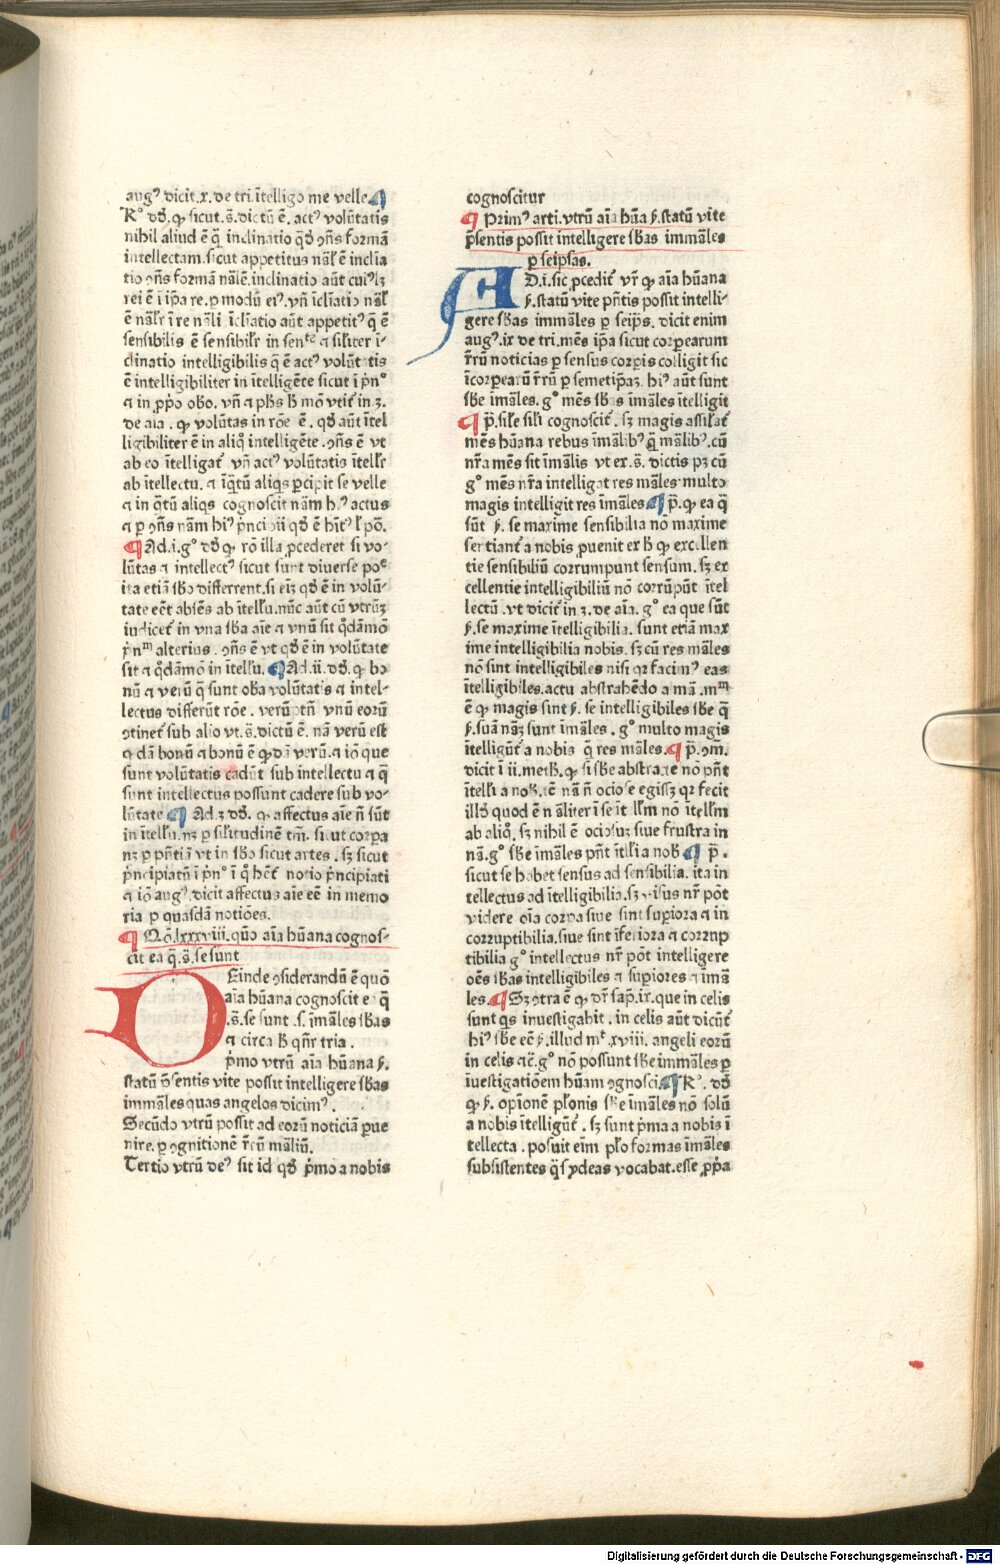 augꝰ dicit.x. de tri.ītelligo me velle
Rº dd̄. ꝙ sicut.s̄.dictū ē. actꝰ volūtatis
nihil aliud ē q̄ inclinatio q̄dā ↄn̄s formā
intellectam.sicut appetitus nāl̄ ē inclia
tio ↄn̄s formā nālē.inclinatio aūt cuiꝰlꝫ
rei ē ī ip̄a re.ꝑ modū eiꝰ. vn̄ īcliatio nāl̄
ē nāl̄r ī re nāli īcliatio aūt appetitꝰ q̄ ē
sensibilis ē sensibil̄r in senᵗᵉ ⁊ sil̄iter ī-
clinatio intelligibilis q̄ ē actꝰ volūtatis
ē intelligibiliter in ītelligēte sicut ī p̄nº
⁊ in ꝓp̄o ob̄o. vn̄ ⁊ ph̄s h̄ mō vtit̄ in.3.
de aīa . ꝙ volūtas in rōe ē . qd̄ aūt ītel
ligibiliter ē in aliq̄ intelligēte .ↄn̄s ē vt
ab eo ītelligat̄ vn̄ actꝰ volūtatis ītell̄r
ab ītellectu. ⁊ īq̄tū aliqs ꝑcipit se velle
⁊ in q̄tū aliqs cognoscit nām hꝰ actus
⁊ ꝑ ↄn̄s nām hiꝰ p̄ncipii qd̄ ē hītꝰ l̄ pō.
Ad.i.gº dd̄ ꝙ rō illa ꝓcederet si vo-
lūtas ⁊ intellectꝰ sicut sunt diuerse poᵉ
ita etiā sb̄o differrent.si eīꝫ qd̄ ē in volū-
tate eēt absēs ab ītell̄u.nūc aūt cū vtrūꝫ
iudicet̄ in vna sb̄a aīe ⁊ vnū sit q̄dāmō
p̄nᵐ alterius . ↄn̄s ē vt qd̄ ē in volūtate
sit ⁊ q̄dāmō in ītell̄u. Ad.ii.dd̄. ꝙ bo
nū ⁊ verū q̄ sunt ob̄a volūtatis ⁊ intel-
lectus differūt rōe . verūptn̄ vnū eorū
ↄtinet̄ sub alio vt.s̄.dictū ē. nā verū est
qdā bonū ⁊ bonū ē qddā verū.⁊ iō que
sunt volūtatis cadūt sub intellectu ⁊ q̄
sunt intellectus possunt cadere sub vo-
lūtate Ad 3 dd̄. ꝙ affectus aīe n̄ sūt
in ītell̄u.nꝫ ꝑ sil̄itudinē tm̄. sicut corpa
nꝫ ꝑ pn̄tiā vt in sb̄o sicut artes . sꝫ sicut
p̄ncipiatū ī p̄nº ī q̄ hēt̄ notio p̄ncipiati
⁊ iō augꝰ.dicit affectus aīe eē in memo
ria ꝑ quasdā notiōes.
Q.ō.lxxxviii.quō aīa hūana cognos-
cit ea q̄.s̄.se sunt
Deinde ↄsiderandū ē quō
aīa hūana cognoscit ea q̄
.s̄.se sunt .s. īmāles sb̄as
⁊ circa h̄ qn̄r tria .
p̄mo vtrū aīa hūana ẜ.
statū p̄sentis vite possit intelligere sb̄as
immāles quas angelos dicimꝰ.
Secūdo vtrū possit ad eorū noticiā ꝑue
nire. ꝑ ↄgnitionē r̄rū māliū.
Tertio vtrū deꝰ sit id qd̄ p̄mo a nobis
cognoscitur
Primꝰ arti.vtrū aīa hūa ẜ.statū vite
p̄sentis possit intelligere sb̄as immāles
ꝑ seipsas.
AD.i.sic ꝓcedit̄ vr̄ ꝙ aīa hūana
ẜ.statū vite pn̄tis possit intelli-
gere sb̄as immāles ꝑ seip̄s. dicit enim
augꝰ.ix de tri.mēs ip̄a sicut corpearum
r̄rū noticias ꝑ sensus corꝑis colligit sic
īcorpearū r̄rū ꝑ semetip̄aꝫ. hiꝰ aūt sunt
sb̄e īmāles. gº mēs sb̄as īmāles ītelligit
p̄.sil̄e sil̄i cognoscit̄. sꝫ magis assilat̄
mēs hūana rebus īmālibꝰ q̄ȝ mālibꝰ.cū
nr̄a mēs sit īmālis vt ex.s̄. dictis pꝫ cū
gº mēs nr̄a intelligat res māles multo
magis intelligit res īmāles p̄.ꝙ ea q̄
sūt ẜ. se maxime sensibilia nō maxime
sentiant̄ a nobis ꝓuenit ex h̄ ꝙ excellen
tie sensibiliū corrumpunt sensum. sꝫ ex
cellentie intelligibiliū nō corrūpūt ītel
lectū .vt dicit̄ in 3. de aīa. gº ea que sūt
ẜ.se maxime ītelligibilia. sunt etiā max
ime intelligibilia nobis. sꝫ cū res māles
nō sint intelligibiles nisi qꝛ facimꝰ eas
ītelligibiles.actu abstrahēdo a mā .mᵐ
ē ꝙ magis sint ẜ. se intelligibiles sb̄e q̄
ẜ.suā nāꝫ sunt īmāles . gº multo magis
ītelligūt̄ a nobis q̄ res māles. p̄.ↄm̄.
dicit ī ii.meth̄. ꝙ si sb̄e abstracte nō pn̄t
ītell̄i a nob̄.tē nā n̄ ociose egissꝫ qꝛ fecit
ill̄d quod ē nāliter ī se ītell̄m nō ītell̄m
ab aliq̄. sꝫ nihil ē ociosuꝫ siue frustra in
nā.gº sb̄e īmāles pn̄t ītell̄i a nob̄ p̄.
sicut se habet sensus ad sensibilia. ita in
tellectus ad ītelligibilia.sꝫ visus nr̄ pōt
videre oīa corpa siue sint suꝑiora ⁊ in
corruptibilia.siue sint īferiora ⁊ corrup
tibilia gº intellectus nr̄ pōt intelligere
oēs sb̄as intelligibiles ⁊ suꝑiores ⁊ īmā
les. Sꝫ ↄtra ē ꝙ dr̄ sap̄.ix.que in celis
sunt qs inuestigabit . in celis aūt dicūt̄
hiꝰ sb̄e eē ẜ.illud mᵗ.xviii. angeli eorū
in celis ⁊c̄.gº nō possunt sb̄e immāles ꝑ
īuestigatiōem hūam ↄgnosci. Rº. dd̄
ꝙ ẜ. opīonē pl̄onis sb̄e īmāles nō solū
a nobis ītelligūt̄ . sꝫ sunt p̄ma a nobis ī
tellecta . posuit eīm pl̄o formas īmāles
subsistentes q̄s ydeas vocabat.esse ꝓp̄a
Digitalisierung gefördert durch die Deutsche Forschungsgemeinschaft - DFG